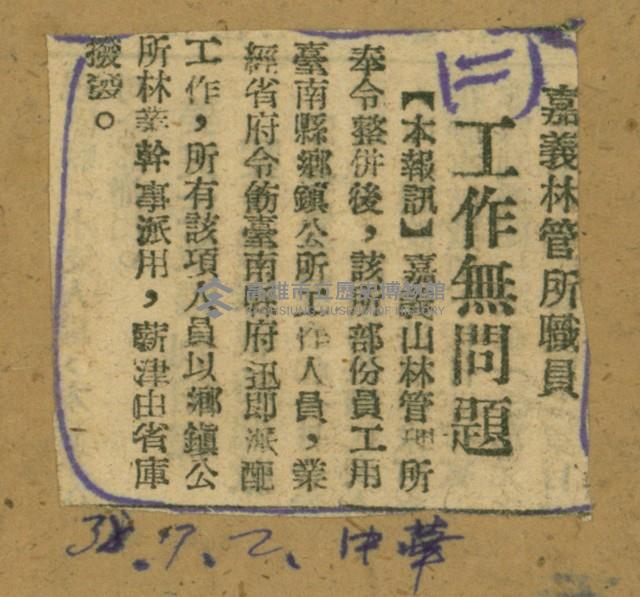 嘉義林管所職員
工作無問題
(二)
【本報訊】嘉山林管理所
奉令整併後，該所部份員工用
臺南縣鄉鎮公所工作人員，業
經省府令飭臺南縣府迅即派配
工作，所有該項人員以鄉鎮公
所林業幹事派用，薪津由省庫
撥發。
高雄市立歷史博物館
KAOHSIUNG MUSEUM OF HISTORY
38.7.2.中華